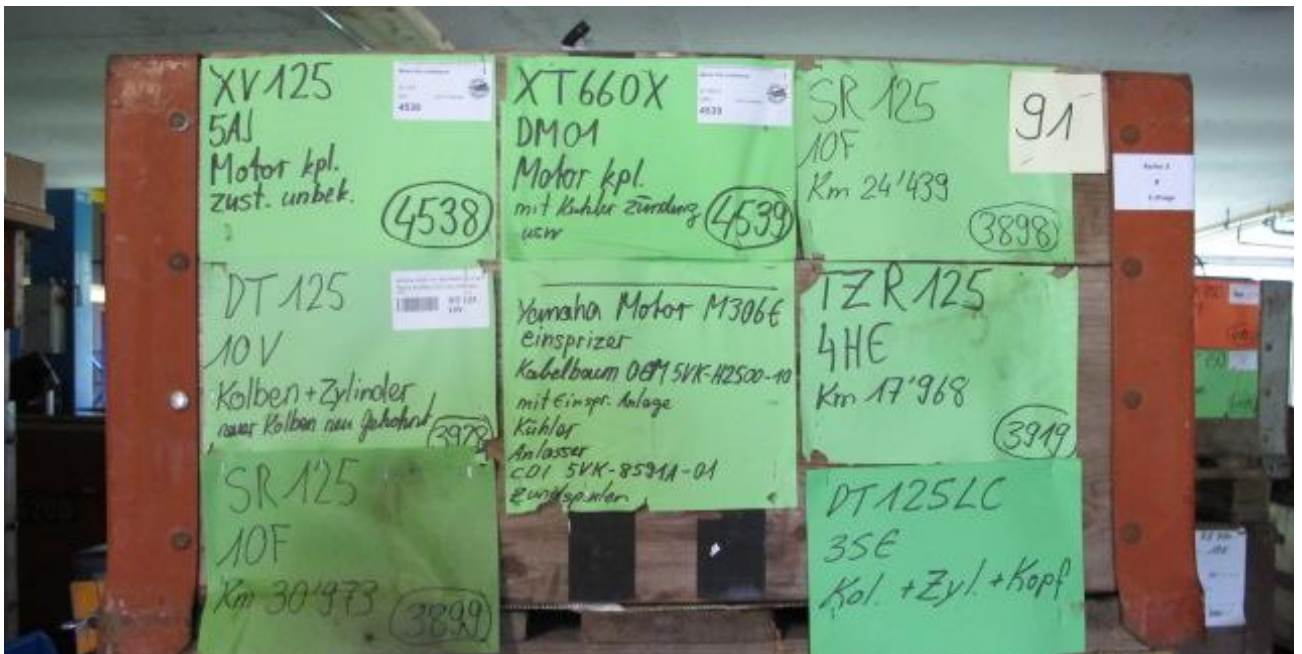 XV125
5AJ
Motor kpl.
zust. unbek.
4538
4538
XT660X
DM01
Motor kpl.
mit Kühler Zündung
usw
4539
4539
SR 125
10F
Km 24'439
3898
91
DT 125
10V
Kolben + Zylinder
neuer Kolben neu gehohnt
3928
DT 125
10V
Yamaha Motor M306E
einsprizer
Kabelbaum OEM 5VK-H2500-10
mit Einspr. Anlage
Kühler
Anlasser
CDI 5VK-8591A-01
Zündspulen
TZR 125
4HE
Km 17'968
3919
SR 125
10F
Km 30'973
3899
DT 125LC
35E
Kol. + Zyl. + Kopf